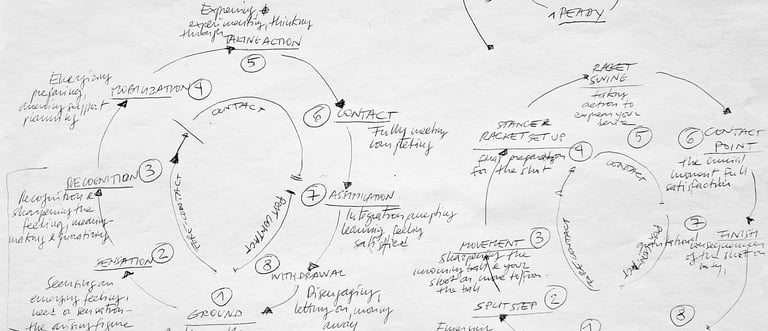 experimenting, thinking
through
TAKING ACTION
5
Energizing
preparing,
support
planning
MOBILIZATION 4
CONTACT
6 CONTACT
Fully meeting
completing
RECOGNITION 3
Recognition &
sharpening the
feeling, meaning-
making & prioritizing
PRE-CONTACT
POST CONTACT
7 ASSIMILATION
Integration accepting
learning feeling
satisfied
SENSATION 2
Sensing an
emerging feeling,
need or sensation -
the arising figure
8
WITHDRAWAL
Disengaging,
letting or moving
away
1
GROUND
READY
RACKET
SWING
taking
action to
your
5
STANCE &
RACKET SET UP
4
final preparation
for the shot
CONTACT
6 CONTACT
POINT
the crucial
moment full
satisfaction
PRE-CONTACT
POST
CONTACT
7
FINISH
consequences
of the shot
MOVEMENT 3
sharpening the
incoming ball & your
the ball
SPLIT STEP 2
Emerging
8